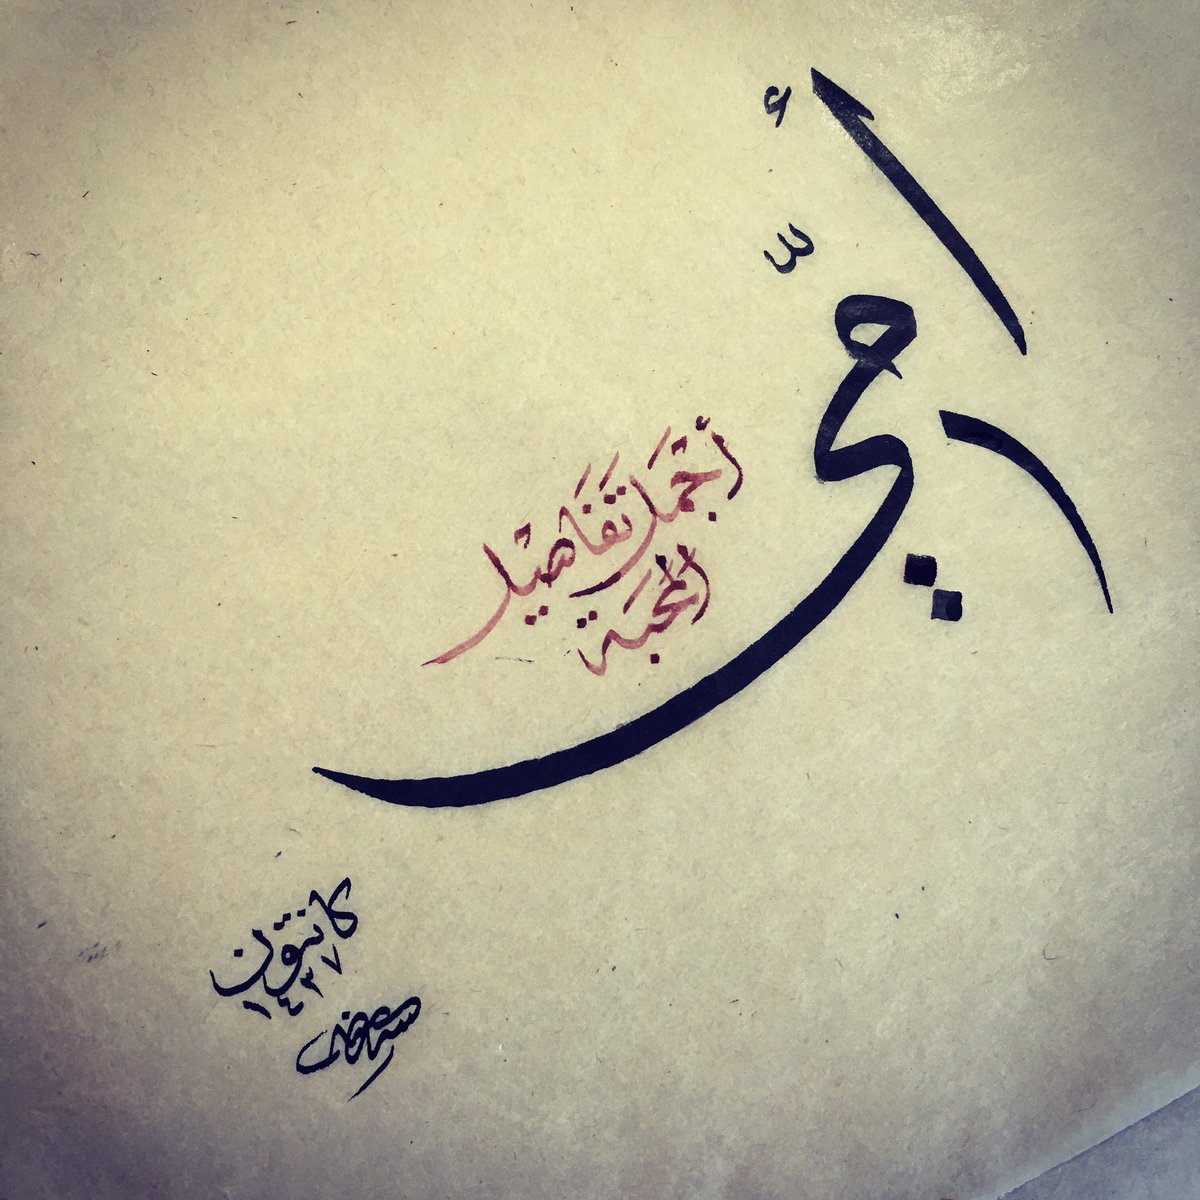 أمّي
أجْمَل تَفَاصِيْل
المحَبَة
كانتون
١٤٣٧